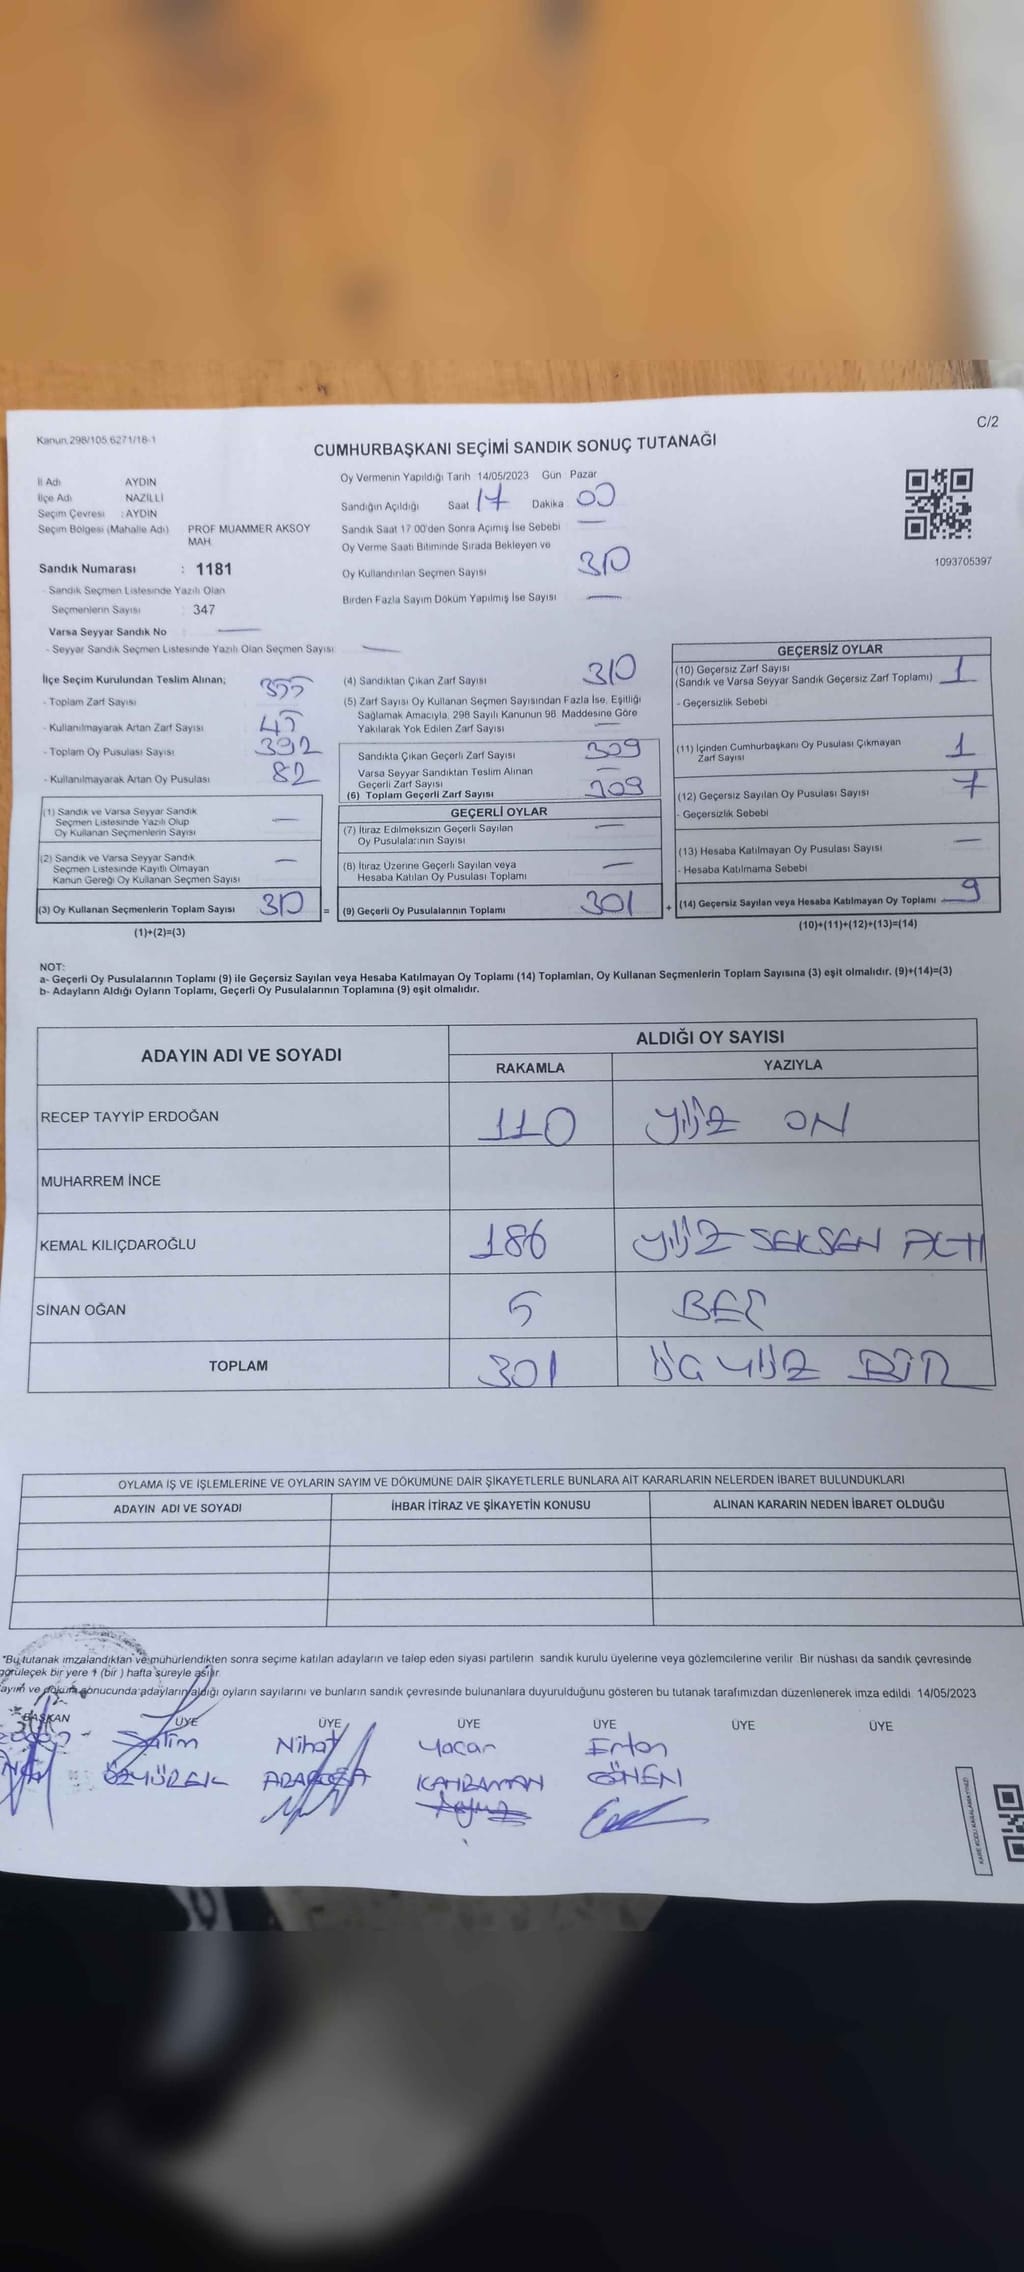 Kanun.298/105.6271/18-1
C/2
CUMHURBAŞKANI SEÇİMİ SANDIK SONUÇ TUTANAĞI
İl Adı AYDIN
İlçe Adı NAZİLLİ
Seçim Çevresi : AYDIN
Seçim Bölgesi (Mahalle Adı) PROF MUAMMER AKSOY
MAH.
Sandık Numarası : 1181
- Sandık Seçmen Listesinde Yazılı Olan
Seçmenlerin Sayısı : 347
Varsa Seyyar Sandık No —
- Seyyar Sandık Seçmen Listesinde Yazılı Olan Seçmen Sayısı —
Oy Vermenin Yapıldığı Tarih 14/05/2023 Gün Pazar
Sandığın Açıldığı Saat 17 Dakika 00
Sandık Saat 17 00'den Sonra Açımış İse Sebebi —
Oy Verme Saati Bitiminde Sırada Bekleyen ve
Oy Kullandırılan Seçmen Sayısı 310
Birden Fazla Sayım Döküm Yapılmış İse Sayısı —
1093705397
İlçe Seçim Kurulundan Teslim Alınan;
- Toplam Zarf Sayısı 355
- Kullanılmayarak Artan Zarf Sayısı 45
- Toplam Oy Pusulası Sayısı 392
- Kullanılmayarak Artan Oy Pusulası 82
(1) Sandık ve Varsa Seyyar Sandık
Seçmen Listesinde Yazılı Olup
Oy Kullanan Seçmenlerin Sayısı —
(2) Sandık ve Varsa Seyyar Sandık
Seçmen Listesinde Kayıtlı Olmayan
Kanun Gereği Oy Kullanan Seçmen Sayısı —
(3) Oy Kullanan Seçmenlerin Toplam Sayısı 310 =
(1)+(2)=(3)
(4) Sandıktan Çıkan Zarf Sayısı 310
(5) Zarf Sayısı Oy Kullanan Seçmen Sayısından Fazla İse, Eşitliği
Sağlamak Amacıyla, 298 Sayılı Kanunun 98. Maddesine Göre
Yakılarak Yok Edilen Zarf Sayısı —
Sandıkta Çıkan Geçerli Zarf Sayısı 309
Varsa Seyyar Sandıktan Teslim Alınan
Geçerli Zarf Sayısı —
(6) Toplam Geçerli Zarf Sayısı 309
GEÇERLİ OYLAR
(7) İtiraz Edilmeksizin Geçerli Sayılan
Oy Pusulalarının Sayısı —
(8) İtiraz Üzerine Geçerli Sayılan veya
Hesaba Katılan Oy Pusulası Toplamı —
(9) Geçerli Oy Pusulalarının Toplamı 301 +
GEÇERSİZ OYLAR
(10) Geçersiz Zarf Sayısı
(Sandık ve Varsa Seyyar Sandık Geçersiz Zarf Toplamı) 1
- Geçersizlik Sebebi
(11) İçinden Cumhurbaşkanı Oy Pusulası Çıkmayan
Zarf Sayısı 1
(12) Geçersiz Sayılan Oy Pusulası Sayısı 7
- Geçersizlik Sebebi
(13) Hesaba Katılmayan Oy Pusulası Sayısı —
- Hesaba Katılmama Sebebi
(14) Geçersiz Sayılan veya Hesaba Katılmayan Oy Toplamı 9
(10)+(11)+(12)+(13)=(14)
NOT:
a- Geçerli Oy Pusulalarının Toplamı (9) ile Geçersiz Sayılan veya Hesaba Katılmayan Oy Toplamı (14) Toplamları, Oy Kullanan Seçmenlerin Toplam Sayısına (3) eşit olmalıdır. (9)+(14)=(3)
b- Adayların Aldığı Oyların Toplamı, Geçerli Oy Pusulalarının Toplamına (9) eşit olmalıdır.
ADAYIN ADI VE SOYADI ALDIĞI OY SAYISI
RAKAMLA YAZIYLA
RECEP TAYYİP ERDOĞAN 110 YÜZ ON
MUHARREM İNCE
KEMAL KILIÇDAROĞLU 186 YÜZ SEKSEN ALTI
SİNAN OĞAN 5 BEŞ
TOPLAM 301 ÜÇ YÜZ BİR
OYLAMA İŞ VE İŞLEMLERİNE VE OYLARIN SAYIM VE DÖKÜMÜNE DAİR ŞİKAYETLERLE BUNLARA AİT KARARLARIN NELERDEN İBARET BULUNDUKLARI
ADAYIN ADI VE SOYADI İHBAR İTİRAZ VE ŞİKAYETİN KONUSU ALINAN KARARIN NEDEN İBARET OLDUĞU
*Bu tutanak imzalandıktan ve mühürlendikten sonra seçime katılan adayların ve talep eden siyasi partilerin sandık kurulu üyelerine veya gözlemcilerine verilir. Bir nüshası da sandık çevresinde
görülecek bir yere 1 (bir ) hafta süreyle asılır.
ayım ve döküm sonucunda adayların aldığı oyların sayılarını ve bunların sandık çevresinde bulunanlara duyurulduğunu gösteren bu tutanak tarafımızdan düzenlenerek imza edildi. 14/05/2023
BAŞKAN ÜYE ÜYE ÜYE ÜYE ÜYE ÜYE
Salim Nihat Yaçar Erton
ÖZYÜREK KAHRAMAN GÖNEN